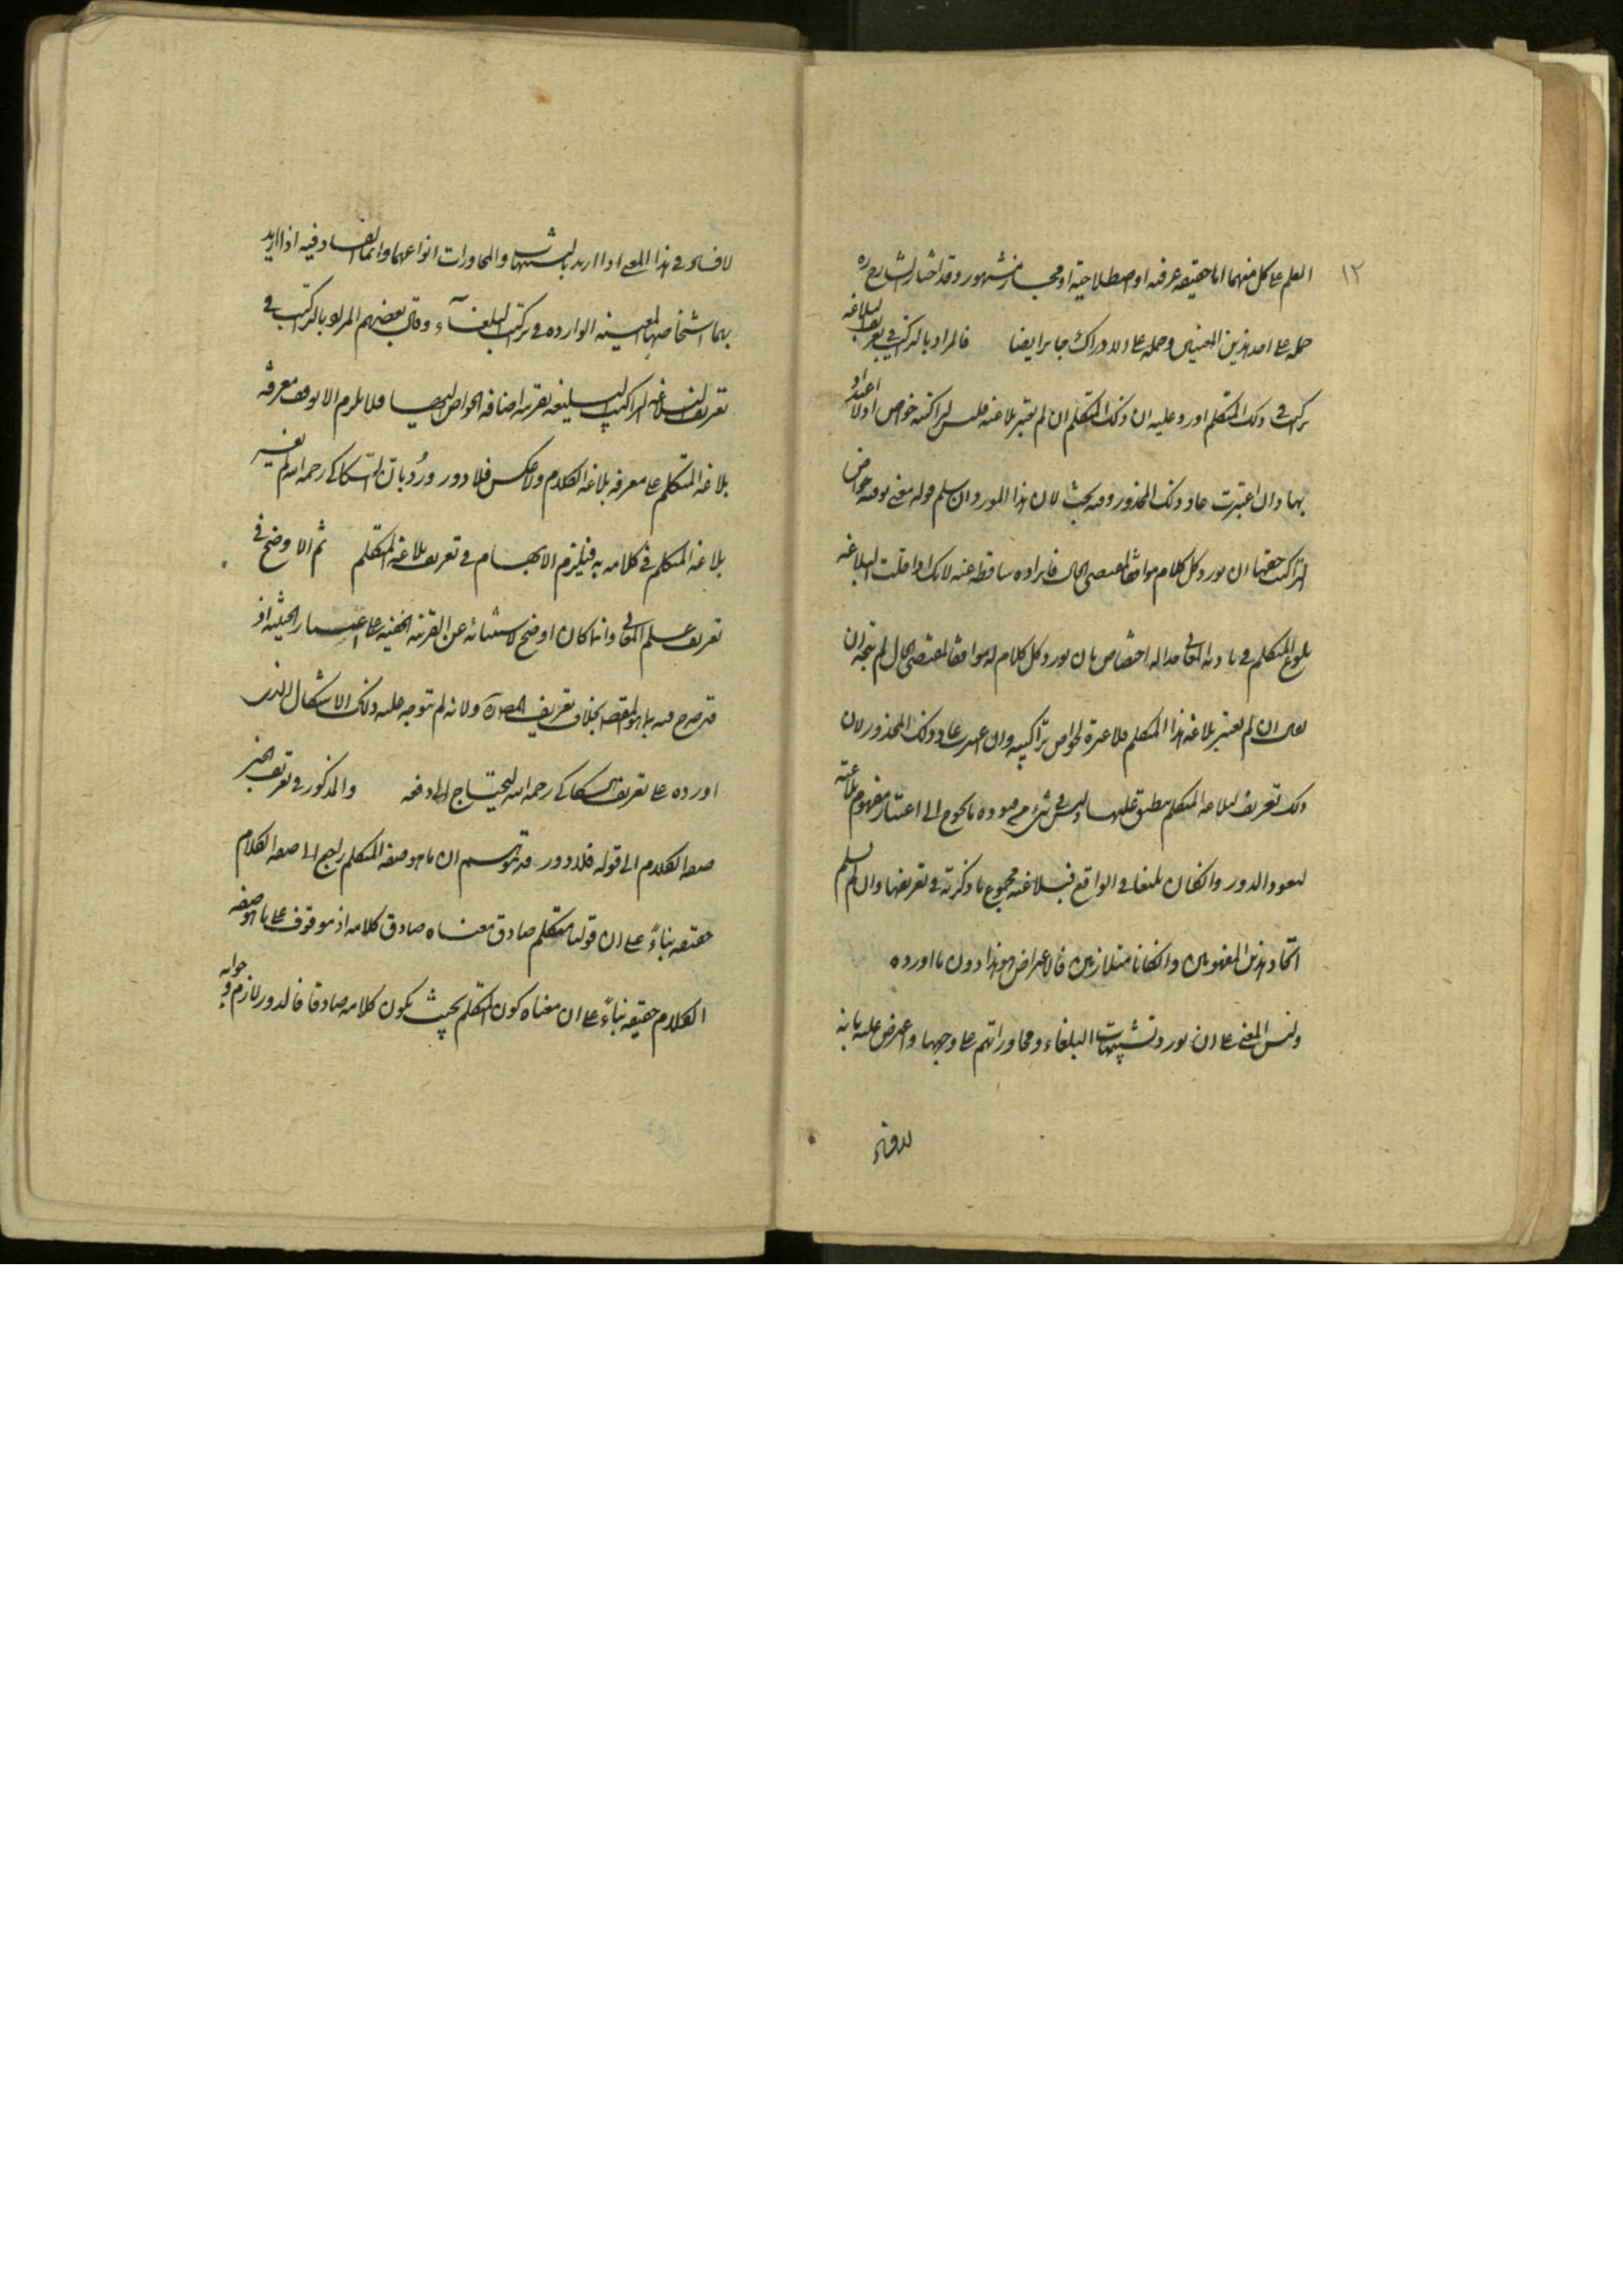 ١٢
العلم على كل منهما اما حقيقة عرفية او اصطلاحية او مجاز مشهور وقد اختار الشارح ره
حمله على احد هذين المعنيين وحمله على الادراك جايز ايضا فالمراد بالتراكيب في تعريف البلاغة
تراكيب ذلك المتكلم اورد عليه ان ذلك المتكلم ان لم يعتبر بلاغته فليس لتراكيبه خواص اولا اعتداد
بها وان اعتبرت عاد ذلك المحذور وفيه بحث لان هذا المورد ان سلم قوله معنى توفية خواص
التراكيب حقها ان يورد كل كلام موافقا لمقتضى الحال فايراده ساقط عنه لانك اذا قلت البلاغة
بلوغ المتكلم في تادية المعاني حدا له اختصاص بان يورد كل كلام له موافقا لمقتضى الحال لم يتجه ان
يقال ان لم يعتبر بلاغة هذا المتكلم فلا عبرة لخواص تراكيبه وان اعتبرت عاد ذلك المحذور لان
ذلك تعريف لبلاغة المتكلم منطبق عليها وليس في شيء من قيوده ما يحوج الى اعتبار مفهوم بلاغته
ليعود الدور وان كان بليغا في الواقع فبلاغته مجموع ما ذكرته في تعريفها وان لم يسلم
اتحاد هذين المفهومين وان كانا متلازمين فالاعتراض هو هذا دون ما اورده
وليس المعنى على ان يورد تشبيهات البلغاء ومحاوراتهم على وجهها واعترض عليه بانه
لا فساد
لا فساد في هذا المعنى اذا اريد بالتشبيهات والمحاورات انواعها وانما الفساد فيه اذا اريد
بهما اشخاصها المعينة الواردة في تراكيب البلغاء وقال بعضهم المراد بالتراكيب في
تعريف البلاغة التراكيب البليغة بقرينة اضافة الخواص اليها فلا يلزم الا توقف معرفة
بلاغة المتكلم على معرفة بلاغة الكلام ولا عكس فلا دور ورُدّ بان السكاكي رحمه الله لم يفسر
بلاغة المتكلم في كلامه به فيلزم الابهام في تعريف بلاغة المتكلم ثم الاوضح في
تعريف علم المعاني وانما كان اوضح لاستغنائه عن القرينة الخفية على اعتبار الحيثية اذ
قد صرح فيه بما هو المقصد بخلاف تعريف المص ره ولانه لم يتوجه عليه ذلك الاشكال الذي
اورده على تعريف السكاكي رحمه الله ليحتاج الى دفعه والمذكور في تعريف الخبر
صفة الكلام الى قوله فلا دور قد يتوهم ان ما هو صفة المتكلم راجع الى صفة الكلام
حقيقة بناءً على ان قولنا متكلم صادق معناه صادق كلامه اذ موقوف على ما هو صفة
الكلام حقيقة بناءً على ان معناه كون المتكلم بحيث يكون كلامه صادقا فالدور لازم وجوابه